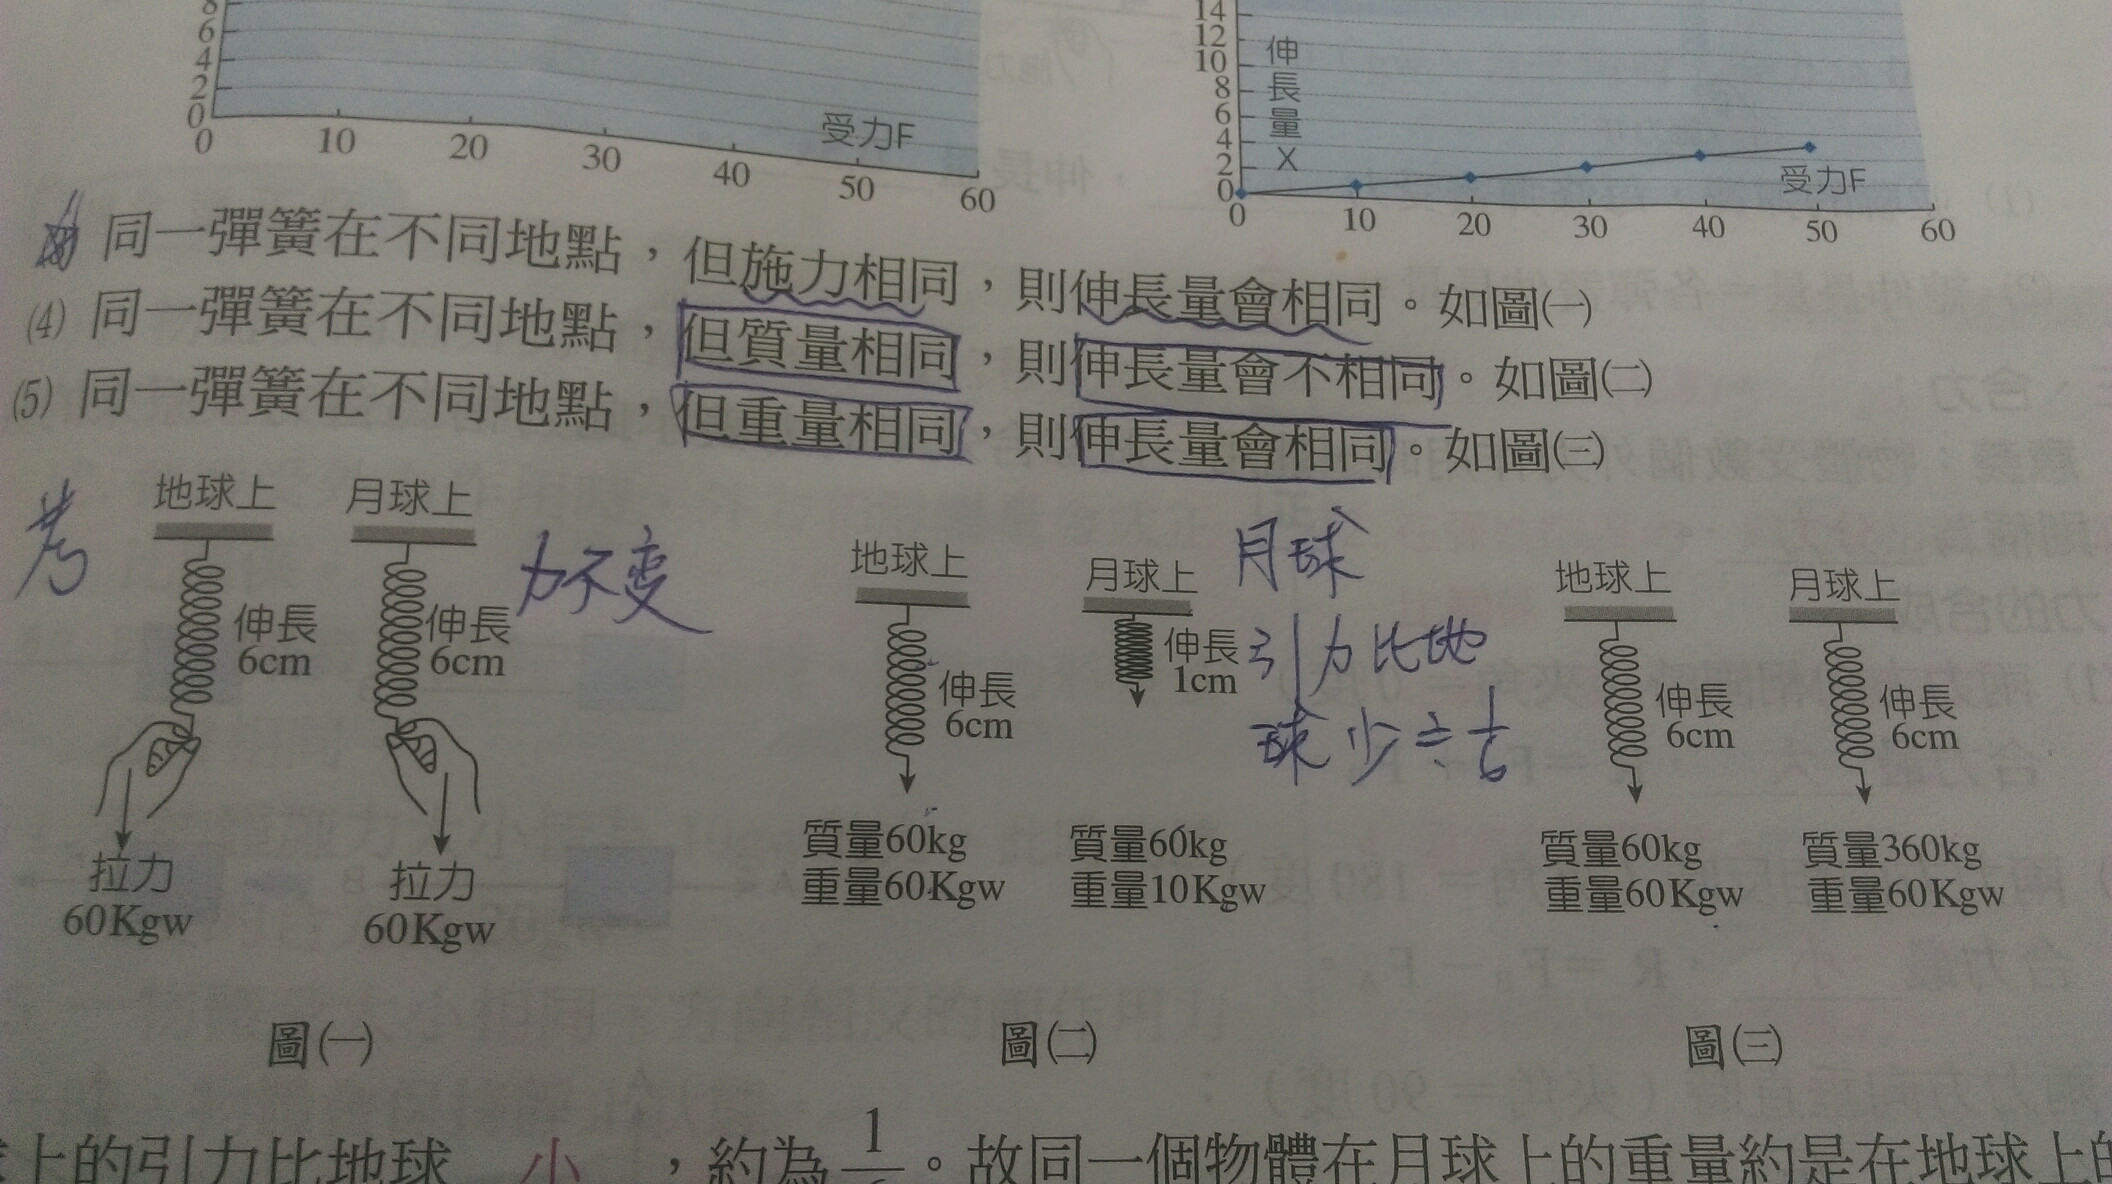 8
6
4
2
0
0 10 20 30 40 50 60
受力F
14
12
10
8
6
4
2
0
伸長量X
受力F
0 10 20 30 40 50 60
同一彈簧在不同地點，但施力相同，則伸長量會相同。如圖㈠
⑷ 同一彈簧在不同地點，但質量相同，則伸長量會不相同。如圖㈡
⑸ 同一彈簧在不同地點，但重量相同，則伸長量會相同。如圖㈢
考
地球上
伸長
6cm
拉力
60Kgw
月球上
伸長
6cm
拉力
60Kgw
力不变
圖㈠
地球上
伸長
6cm
質量60kg
重量60Kgw
月球上
伸長
1cm
質量60kg
重量10Kgw
月球
引力比地
球少 1/6
圖㈡
地球上
伸長
6cm
質量60kg
重量60Kgw
月球上
伸長
6cm
質量360kg
重量60Kgw
圖㈢
上的引力比地球 小 ，約為 1/6。故同一個物體在月球上的重量約是在地球上的